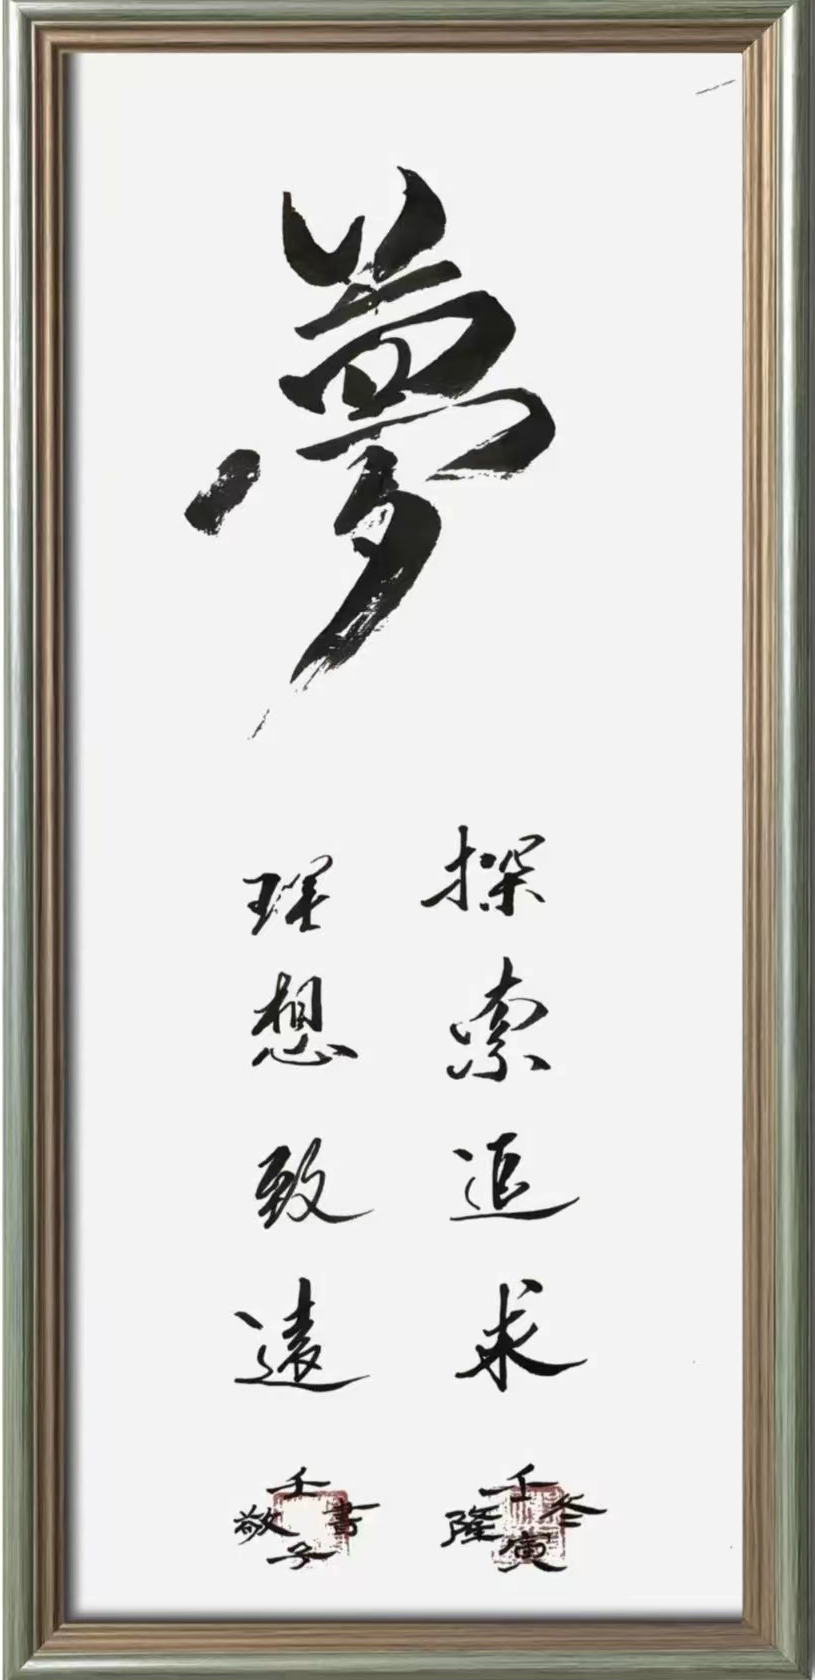 夢
探索追求
理想致遠
壬寅隆冬
壬子敬書